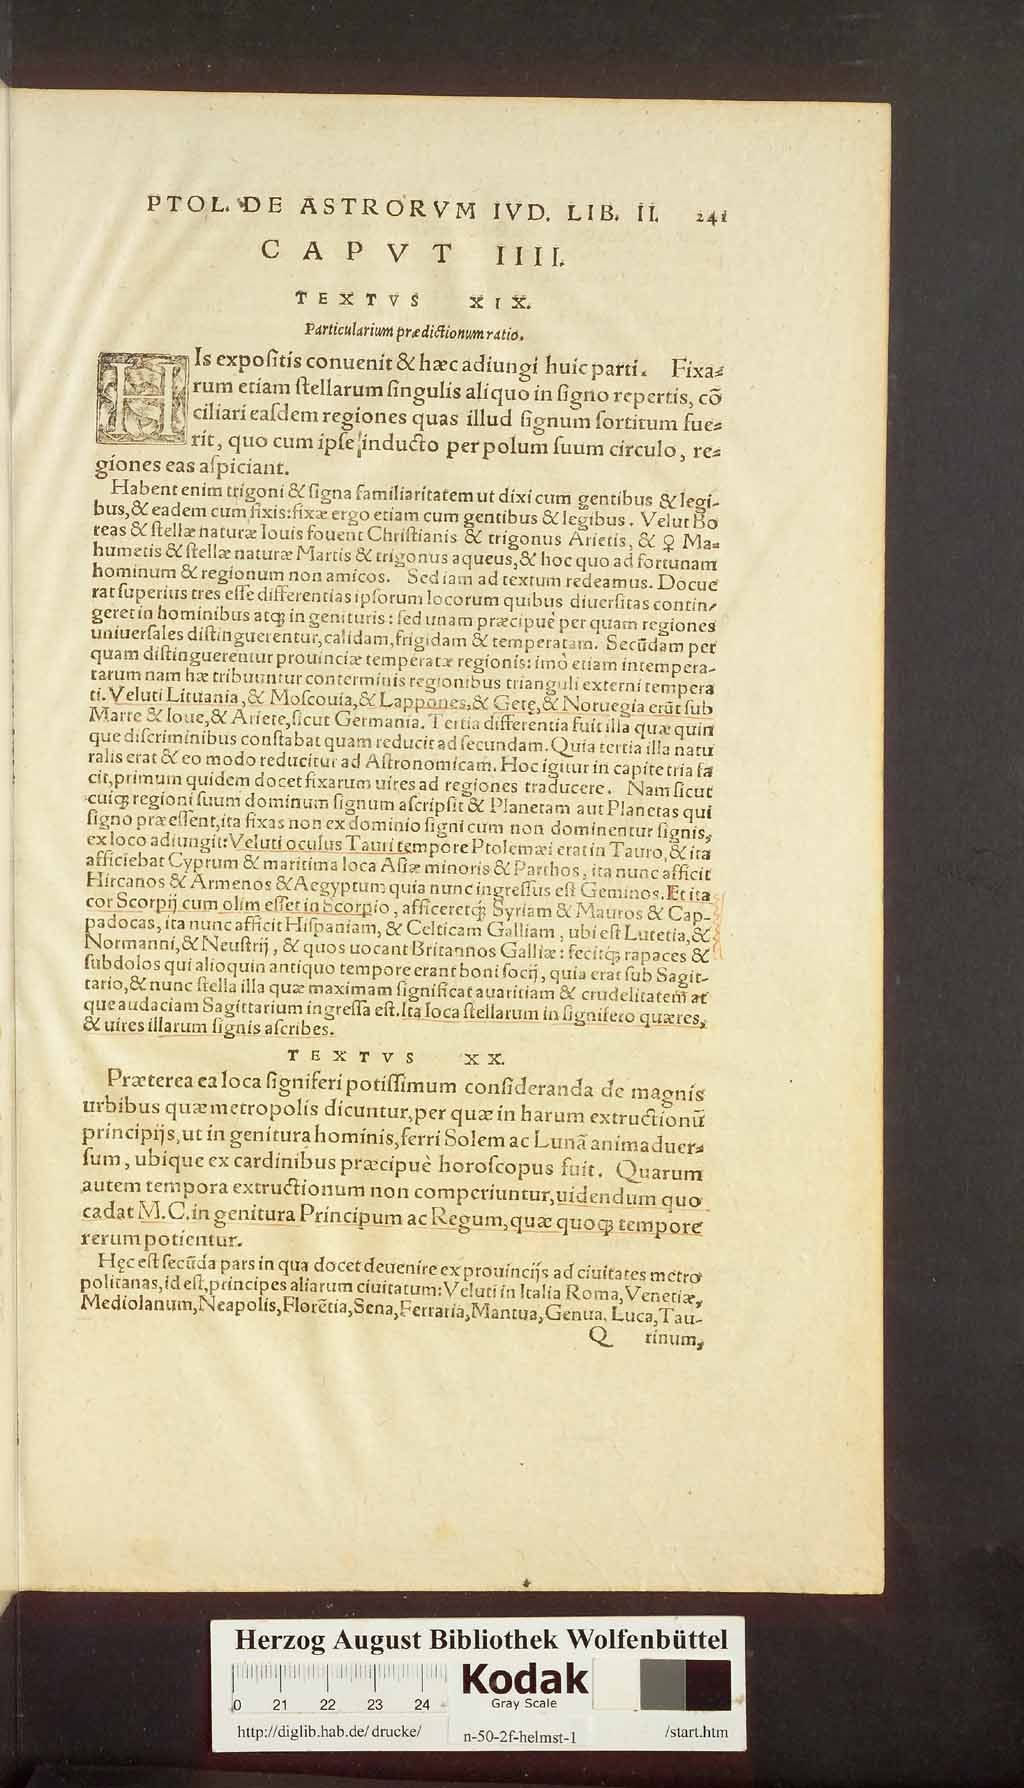 PTOL. DE ASTRORVM IVD. LIB. II. 241
CAPVT IIII.
TEXTVS XIX.
Particularium prædictionum ratio.
HIs expositis conuenit & hæc adiungi huic parti. Fixa⸗
rum etiam stellarum singulis aliquo in signo repertis, cõ
ciliari easdem regiones quas illud signum sortitum fue⸗
rit, quo cum ipse inducto per polum suum circulo, re⸗
giones eas aspiciant.
Habent enim trigoni & signa familiaritatem ut dixi cum gentibus & legi-
bus, & eadem cum fixis: fixæ ergo etiam cum gentibus & legibus. Velut Bo
reas & stellæ naturæ Iouis fouent Christianis & trigonus Arietis, & ♀ Ma⸗
humetis & stellæ naturæ Martis & trigonus aqueus, & hoc quo ad fortunam
hominum & regionum non amicos. Sed iam ad textum redeamus. Docue
rat superius tres esse differentias ipsorum locorum quibus diuersitas contin⸗
geret in hominibus atq; in genituris: sed unam præcipuè per quam regiones
uniuersales distinguerentur, calidam, frigidam & temperatam. Secũdam per
quam distinguerentur prouinciæ temperatæ regionis: imò etiam intempera-
tarum nam hæ tribuuntur conterminis regionibus trianguli externi tempera
ti. Veluti Lituania, & Moscouia, & Lappones, & Getę, & Noruegia erũt sub
Marte & Ioue, & Ariete, sicut Germania. Tertia differentia fuit illa quæ quin
que discriminibus constabat quam reducit ad secundam. Quia tertia illa natu
ralis erat & eo modo reducitur ad Astronomicam. Hoc igitur in capite tria fa
cit, primum quidem docet fixarum uires ad regiones traducere. Nam sicut
cuiq; regioni suum dominum signum ascripsit & Planetam aut Planetas qui
signo præessent, ita fixas non ex dominio signi cum non dominentur signis,
ex loco adiungit: Veluti oculus Tauri tempore Ptolemæi erat in Tauro, & ita
afficiebat Cyprum & maritima loca Asiæ minoris & Parthos, ita nunc afficit
Hircanos & Armenos & Aegyptum quia nunc ingressus est Geminos. Et ita
cor Scorpij cum olim esset in Scorpio, afficeretq; Syriam & Mauros & Cap-
padocas, ita nunc afficit Hispaniam, & Celticam Galliam, ubi est Lutetia, &
Normanni, & Neustrij, & quos uocant Britannos Galliæ: fecitq; rapaces &
subdolos qui alioquin antiquo tempore erant boni socij, quia erat sub Sagit-
tario, & nunc stella illa quæ maximam significat auaritiam & crudelitatem at
que audaciam Sagittarium ingressa est. Ita loca stellarum in signifero quæres,
& uires illarum signis ascribes.
TEXTVS XX.
Præterea ea loca signiferi potissimum consideranda de magnis
urbibus quæ metropolis dicuntur, per quæ in harum extructionũ
principijs, ut in genitura hominis, ferri Solem ac Lunã animaduer⸗
sum, ubique ex cardinibus præcipuè horoscopus fuit. Quarum
autem tempora extructionum non comperiuntur, uidendum quo
cadat M. C. in genitura Principum ac Regum, quæ quoq; tempore
rerum potientur.
Hęc est secũda pars in qua docet deuenire ex prouincijs ad ciuitates metro
politanas, id est, principes aliarum ciuitatum: Veluti in Italia Roma, Venetiæ,
Mediolanum, Neapolis, Florẽtia, Sena, Ferraria, Mantua, Genua, Luca, Tau-
Q rinum,
Herzog August Bibliothek Wolfenbüttel
0 21 22 23 24
Kodak
Gray Scale
http://diglib.hab.de/drucke/ n-50-2f-helmst-1 /start.htm